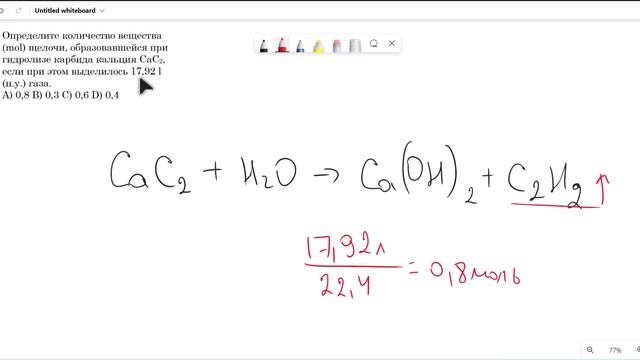 Untitled whiteboard
Определите количество вещества
(mol) щелочи, образовавшейся при
гидролизе карбида кальция CaC₂,
если при этом выделилось 17,92 l
(н.у.) газа.
A) 0,8 B) 0,3 C) 0,6 D) 0,4
CaC₂ + H₂O → Ca(OH)₂ + C₂H₂ ↑
17,92 л
22,4
= 0,8 моль
77%